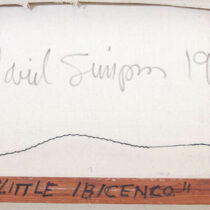 David Simpson 19
"LITTLE IBICENCO"